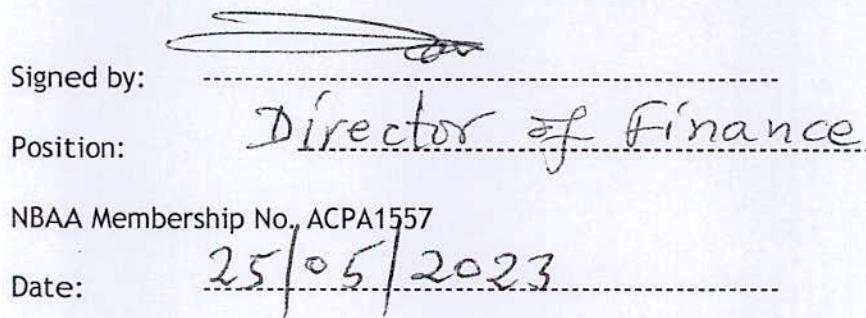 Signed by:
Position: Director of Finance
NBAA Membership No. ACPA1557
Date: 25/05/2023